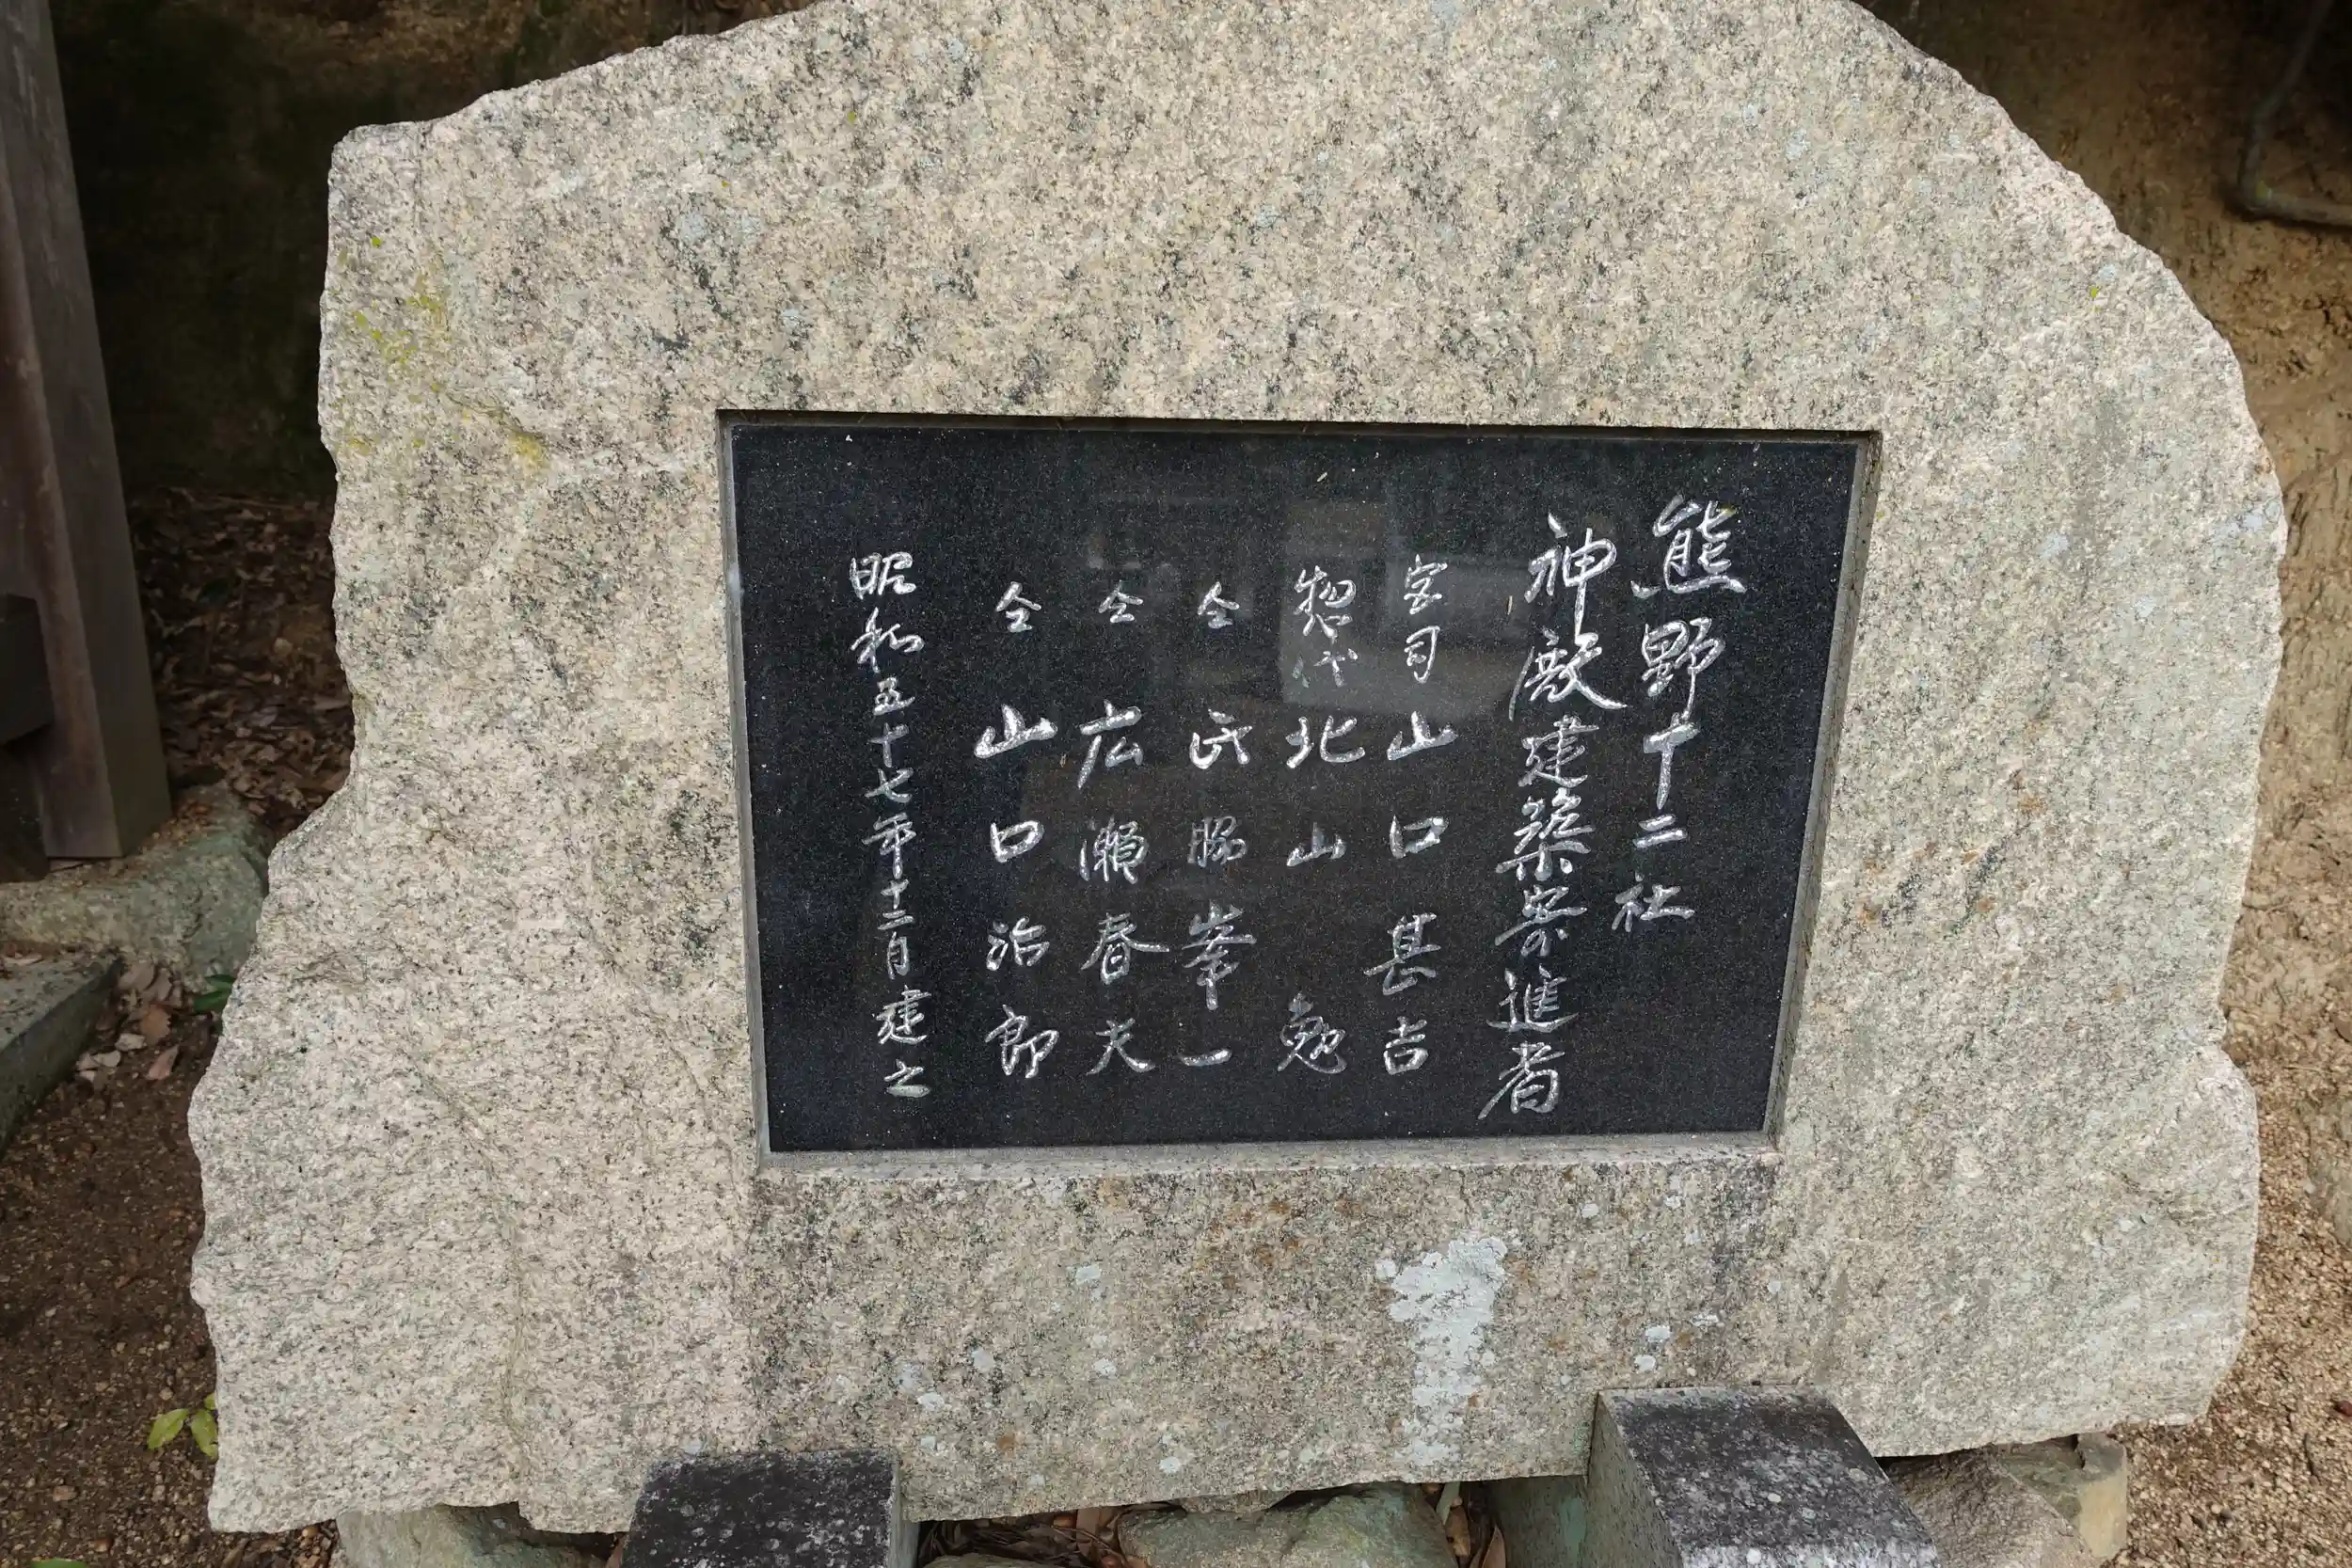 熊野十二社
神殿建築寄進者
宮司 山口甚吉
惣代 北山勉
仝 氏脇峯一
仝 広瀬春夫
仝 山口治郎
昭和五十七年十二月建之